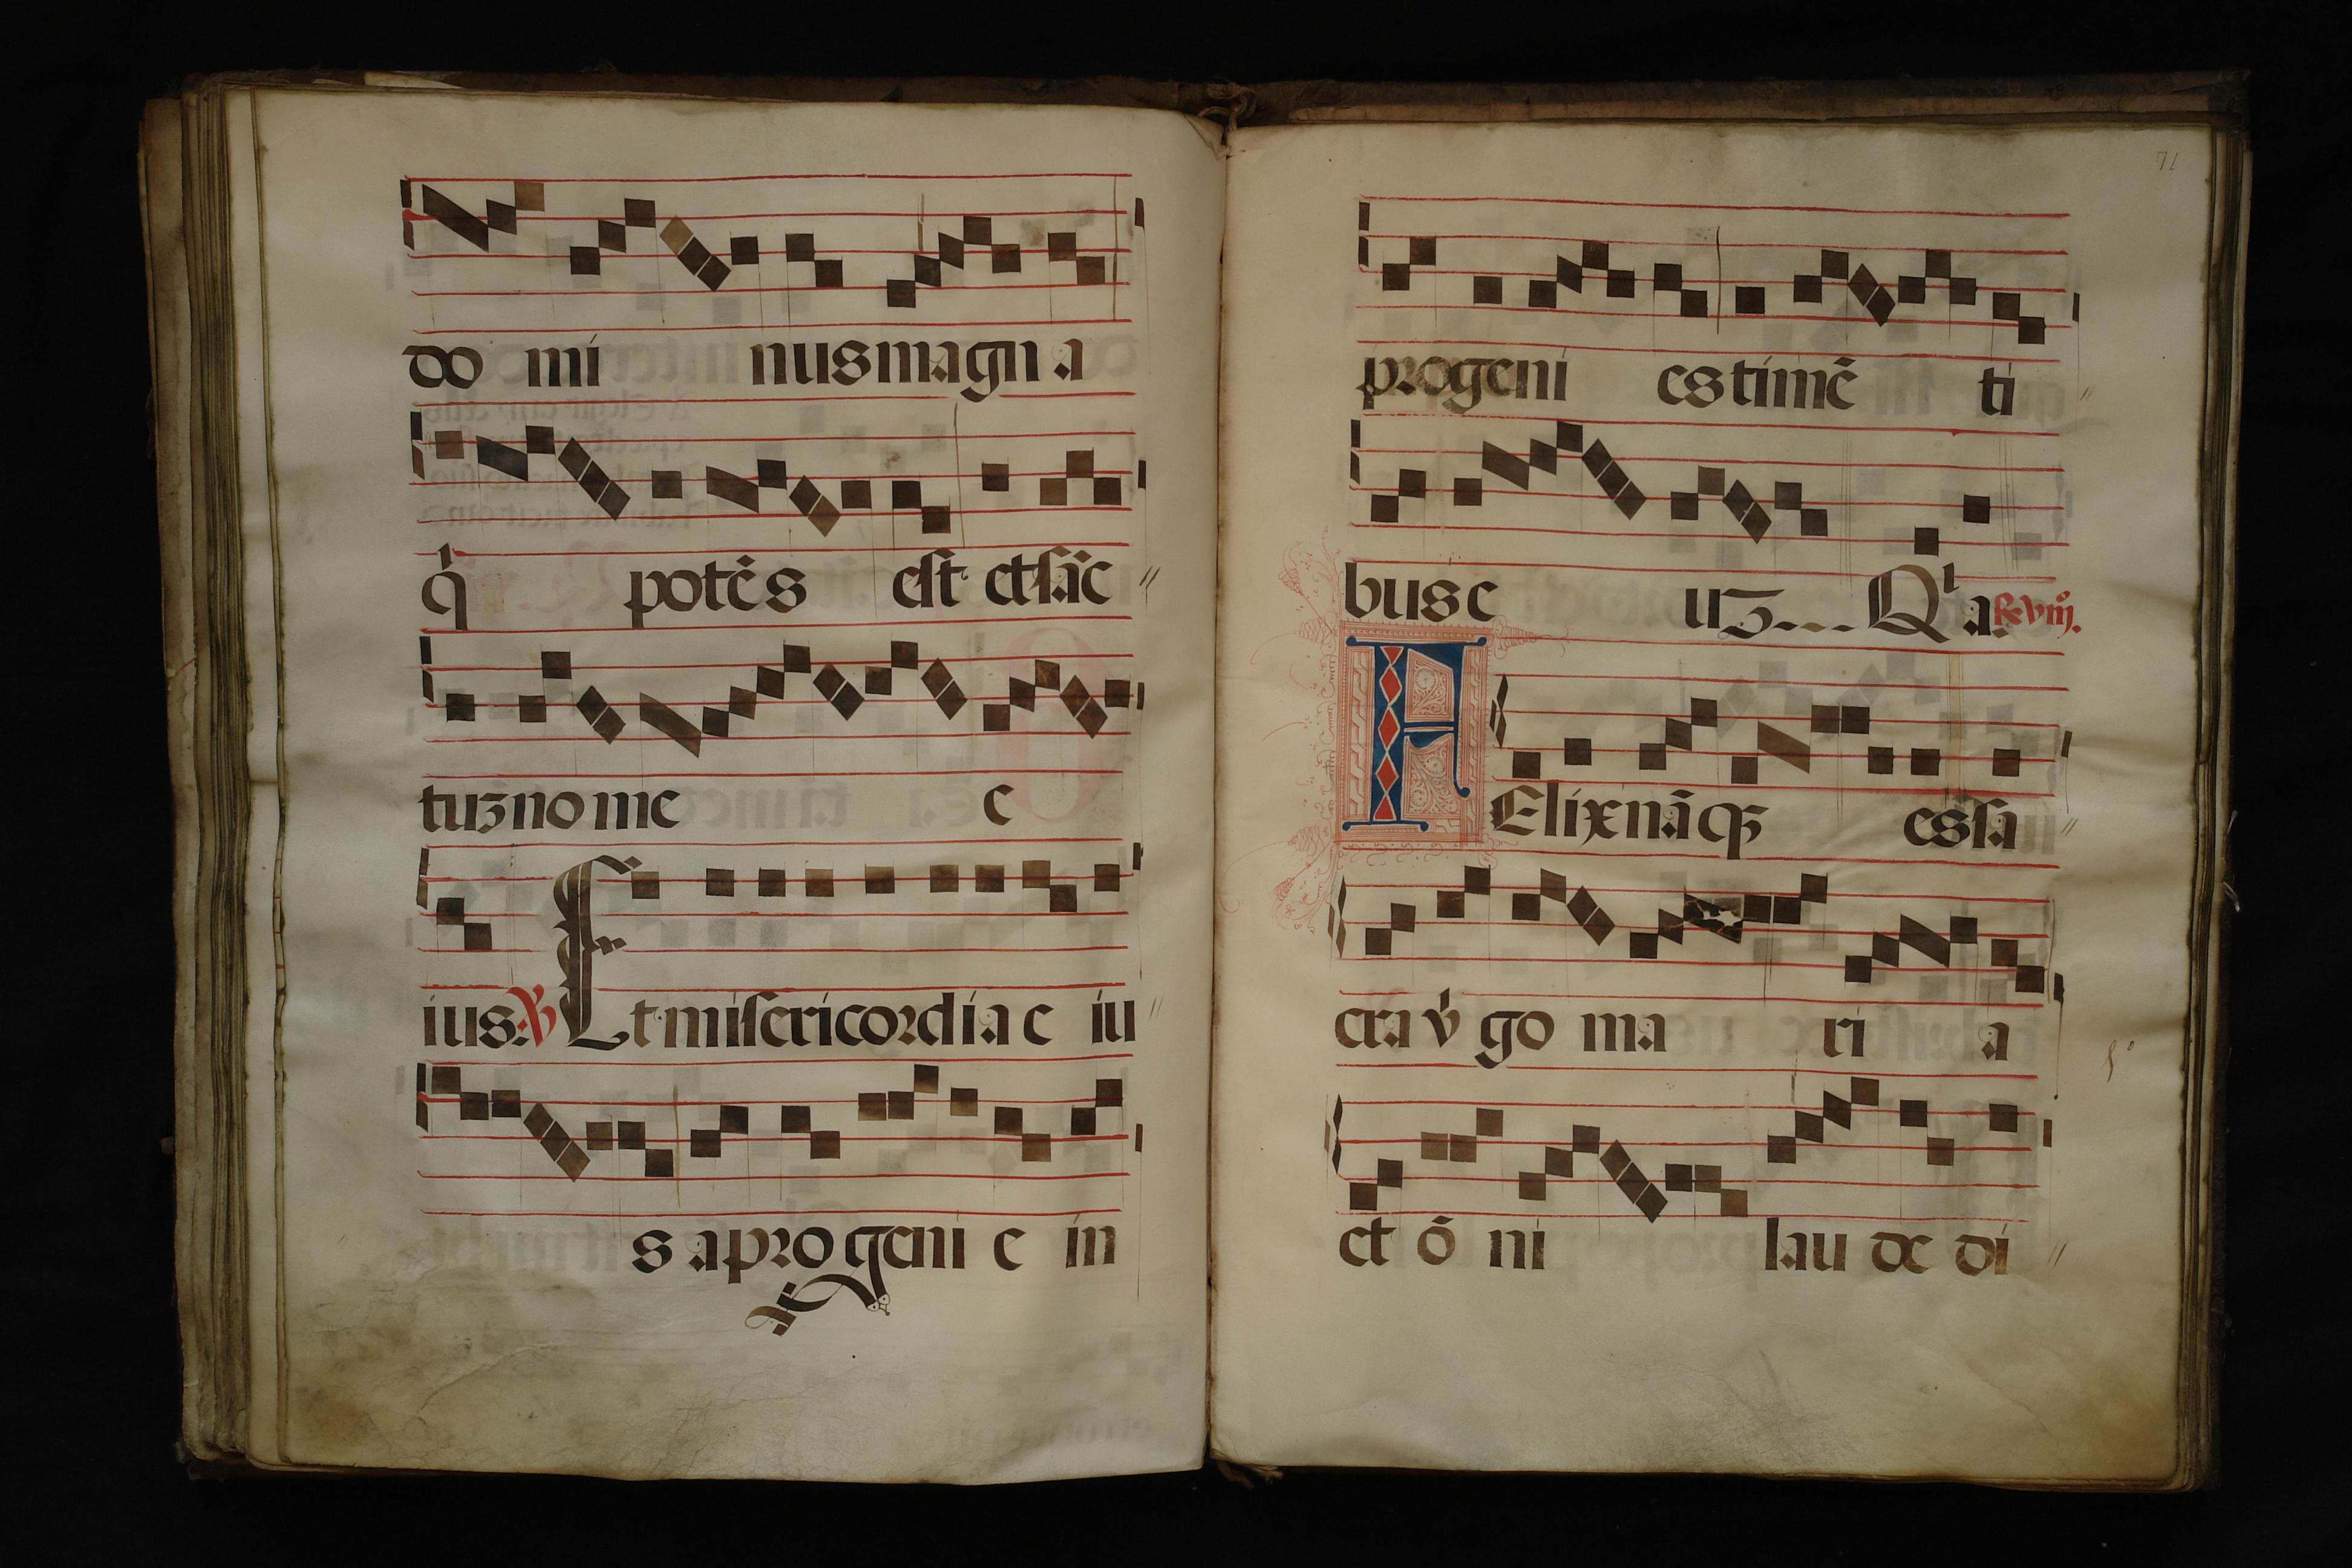 do mi nus magn a
q̇ potēs est et sāc
tuʒ no me e
ius. ℣ Et misericordia e iu
s a progeni e in
71
progeni es timē ti
bus e uʒ... Qⁱ a. ℟. viij.
FElix nāqʒ es sa
cra v̇go ma ri a
et ō ni lau de di